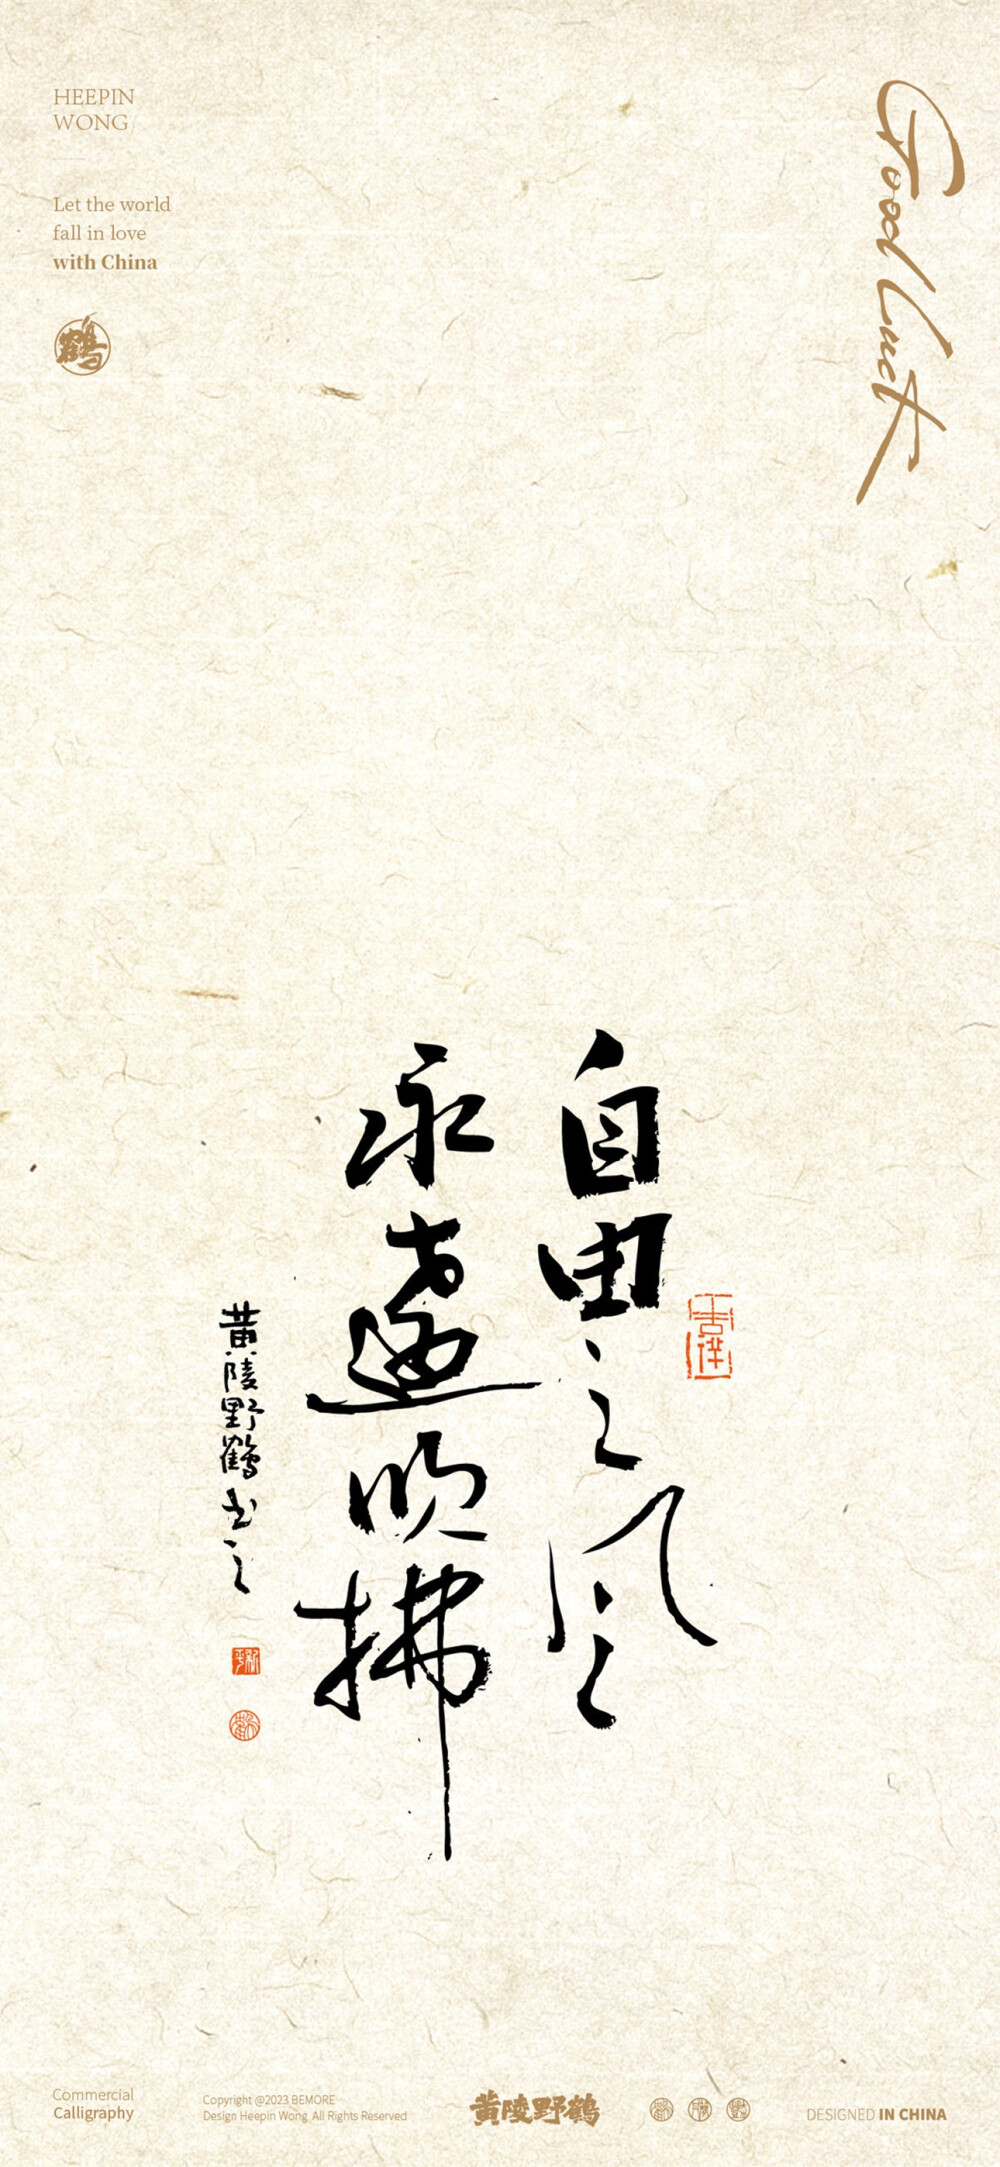 HEEPIN
WONG
Let the world
fall in love
with China
鹤
Good luck
自由之风
永远吹拂
黄陵野鹤书之
Commercial
Calligraphy
Copyright @2023 BEMORE
Design Heepin Wong All Rights Reserved
黄陵野鹤
DESIGNED IN CHINA